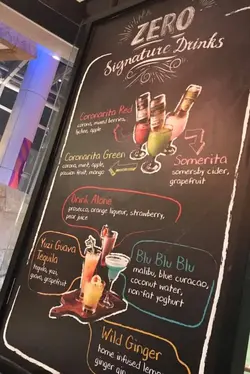 ZERO
Signature Drinks
Coronarita Red
corona, mixed berries,
lychee, apple
Coronarita Green
corona, mint, apple,
passion fruit, mango
Somerita
somersby cider,
grapefruit
Drink Alone
prosecco, orange liqueur, strawberry,
pear juice
Yuzu Guava
Tequila
tequila, yuzu,
guava, grapefruit
Blu Blu Blu
malibu, blue curacao,
coconut water,
non-fat yoghurt
Wild Ginger
home infused lemon
ginger gin,